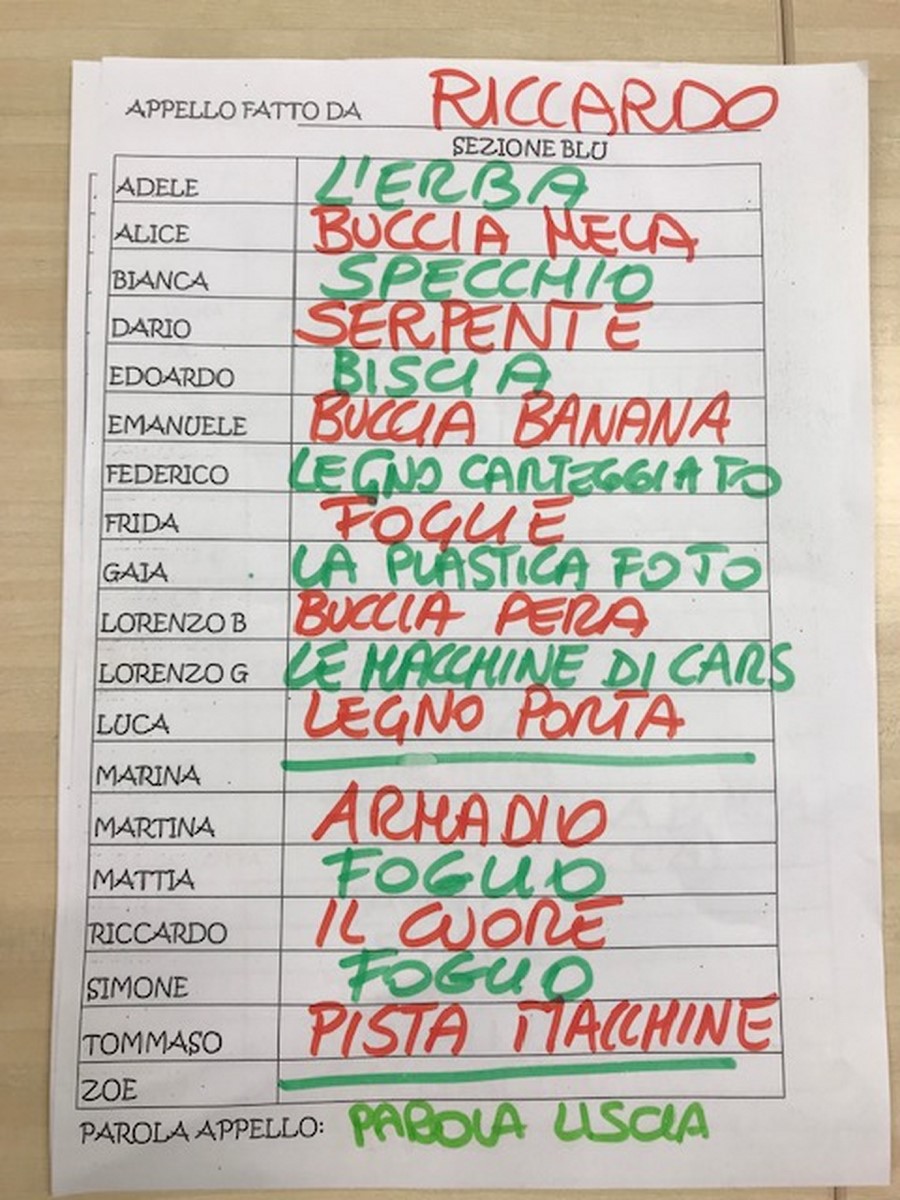 APPELLO FATTO DA RICCARDO
SEZIONE BLU
ADELE L'ERBA
ALICE BUCCIA MELA
BIANCA SPECCHIO
DARIO SERPENTE
EDOARDO BISCIA
EMANUELE BUCCIA BANANA
FEDERICO LEGNO CARTEGGIATO
FRIDA FOGLIE
GAIA LA PLASTICA FOTO
LORENZO B BUCCIA PERA
LORENZO G LE MACCHINE DI CARS
LUCA LEGNO PORTA
MARINA
MARTINA ARMADIO
MATTIA FOGLIO
RICCARDO IL CUORE
SIMONE FOGLIO
TOMMASO PISTA MACCHINE
ZOE
PAROLA APPELLO: PAROLA LISCIA